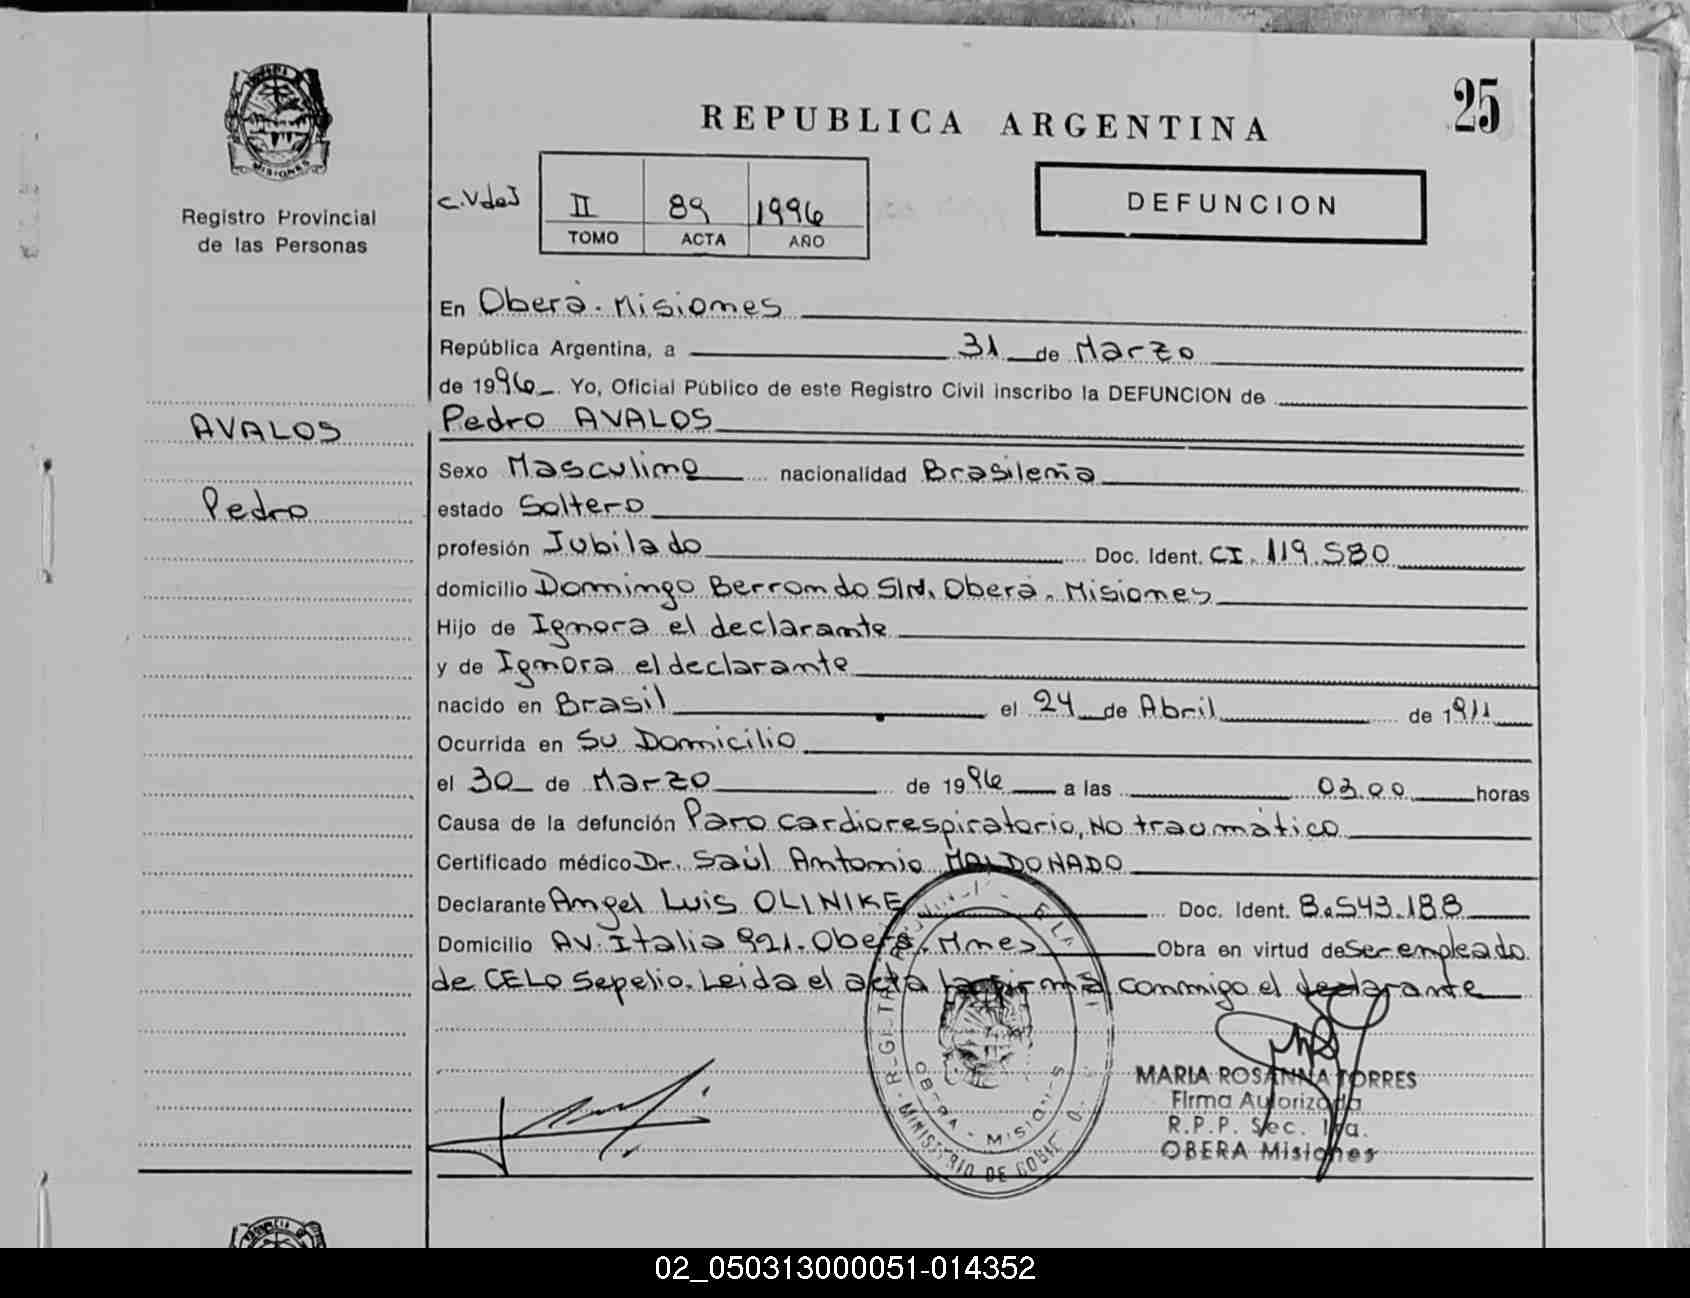 25
REPUBLICA ARGENTINA
MISIONES
Registro Provincial
de las Personas
C.VdeJ
II 89 1996
TOMO ACTA AÑO
DEFUNCION
AVALOS
Pedro
En Oberá. Misiones
República Argentina, a 31 de Marzo
de 1996 Yo, Oficial Público de este Registro Civil inscribo la DEFUNCION de
Pedro AVALOS
Sexo Masculino nacionalidad Brasileña
estado Soltero
profesión Jubilado Doc. Ident. CI. 119.580
domicilio Domingo Berrondo S/N. Oberá. Misiones
Hijo de Ignora el declarante
y de Ignora el declarante
nacido en Brasil el 24 de Abril de 1911
Ocurrida en Su Domicilio
el 30 de Marzo de 1996 a las 03.00 horas
Causa de la defunción Paro cardiorespiratorio, No traumático
Certificado médico Dr. Saúl Antonio MALDONADO
Declarante Angel Luis OLINIKE Doc. Ident. 8.543.188
Domicilio Av. Italia 921. Oberá. Mnes Obra en virtud de Ser empleado
de CELO Sepelio. Leida el acta la firma conmigo el declarante
MINISTERIO DE GOBIE
OBERA - MISIONES
MARIA ROSANNA TORRES
Firma Autorizada
R.P.P. Sec. 1ra.
OBERA Misiones
02_050313000051-014352